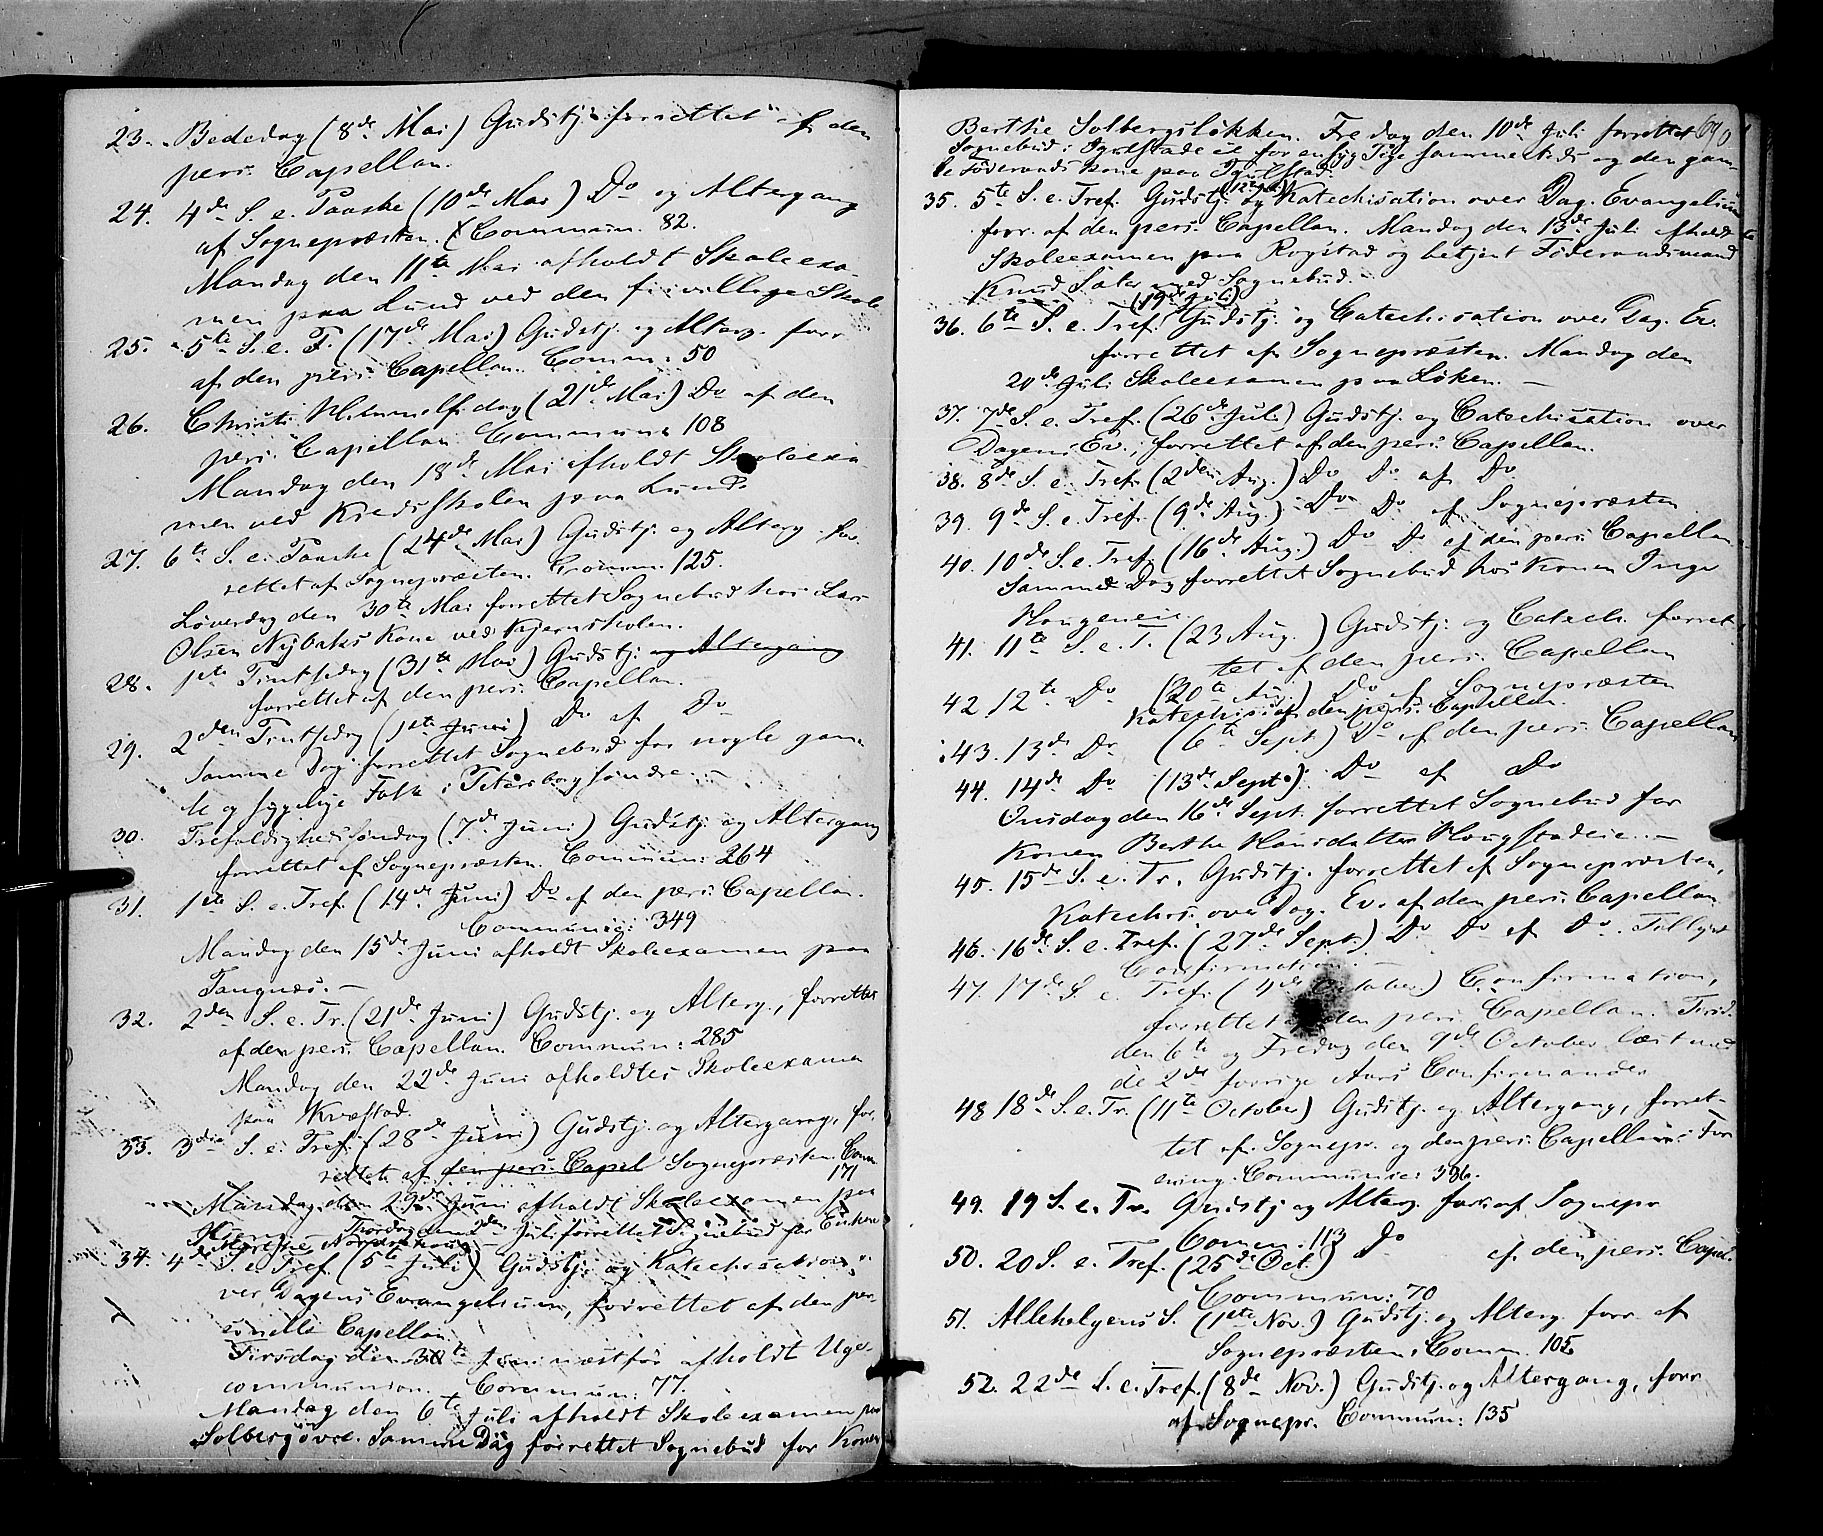 23. Bededag (8de Mai) Gudstj. forrettet af den
pers. Capellan.
24. 4de S. e. Paaske (10de Mai) Do og Altergang
af Sognepræsten. Commun. 82.
Mandag den 11te Mai afholdt Skoleexa-
men paa Lund ved den frivillige Skole
25. 5te S. e. P. (17de Mai) Gudstj. og Alterg. forr.
af den pers. Capellan. Comm: 50
26. Christi Himmelfsdag (21de Mai) Do af den
pers. Capellan Commun: 108
Mandag den 18de Mai afholdt Skoleexa-
men ved Kredsskolen paa Lund.
27. 6te S. e. Paaske (24de Mai) Gudstj. og Alterg. for-
rettet af Sognepræsten. Comm. 125.
Løverdag den 30te Mai forrettet Sognebud hos Lars
Olsen Nybaks Kone ved Kjernskolen.
28. 1ste Pintsedag (31te Mai) Gudstj. og Altergang
forrettet af den pers. Capellan.
29. 2den Pintsedag (1ste Juni) Do af Do
Samme Dag forrettet Sognebud for nogle gam-
le og sygelige Folk i Petersborg søndre.
30. Trefoldighedssøndag (7de Juni) Gudstj. og Altergang
forrettet af Sognepræsten. Commun: 264
31. 1ste S. e. Tref. (14de Juni) Do af den pers. Capellan.
Communic: 349
Mandag den 15de Juni afholdt Skoleexamen paa
Tangnæs.
32. 2den S. e. Tr. (21de Juni) Gudstj. og Alterg., forrettet
af den pers. Capellan. Commun: 285
Mandag den 22de Juni afholdtes Skoleexamen
paa Kvæstad.
33. 3die S. e. Tref. (28de Juni) Gudstj. og Altergang, for-
rettet af den pers. Capel Sognepræsten. Comm.
171
Mandag den 29de Juni afholdt Skoleexamen paa
Torsdag den 2den Juli forrettet Sognebud for Enken
34. 4de S. e. Tref. (5te Juli) Gudstj. og Katechisation o-
ver Dagens Evangelium, forrettet af den per-
sonelle Capellan.
Tirsdag den 30te Juni næstfør afholdt Uge-
communion. Commun: 77.
Mandag den 6te Juli afholdt Skoleexamen paa
Solberg øvre. Samme Dag forrettet Sognebud for Konen
690
Berthe Solbergsløkken. Fredag den 10de Juli forrettet
Sognebud i for en syg Pige sammesteds og den gam-
le Føderaads Kone paa
35. 5te S. e. Tref. (12te Juli) Gudstj. og Katechisation over Dag. Evangelium
forr. af den pers. Capellan. Mandag den 13de Juli afholdt
Skoleexamen paa Rogstad og betjent Føderaadsmand
Knud Sater med Sognebud.
(19de Juli)
36. 6te S. e. Tref. Gudstj. og Catechisation over Dag. Ev.
forrettet af Sognepræsten. Mandag den
20de Juli Skoleexamen paa Løken.
37. 7de S. e. Tref. (26de Juli) Gudstj. og Catechisation over
Dagens Ev., forrettet af den pers. Capellan.
38. 8de S. e. Tref. (2den Aug.) Do Do af Do
39. 9de S. e. Tref. (9de Aug.) Do Do af Sognepræsten
40. 10de S. e. Tref. (16de Aug.) Do Do af den pers. Capellan.
Samme Dag forrettet Sognebud hos Konen Inge
Haugeneie.
41. 11te S. e. T. (23 Aug.) Gudstj. og Catech. forret-
tet af den pers. Capellan
42. 12te Do (30te Aug.) Do af Sognepræsten
Katechis. af den pers. Capellan.
43. 13de Do (6te Sept.) Do af den pers. Capellan
44. 14de Do (13de Sept.) Do af Do
Onsdag den 16de Sept. forrettet Sognebud for
Konen Berthe Hansdatter Haugstadeie.
45. 15de S. e. Tr. Gudstj. forrettet af Sognepræsten,
Katechis. over Dag. Ev. af den pers. Capellan
46. 16de S. e. Tref. (27de Sept.) Do Do af Do. Tillyst
Confirmation.
47. 17de S. e. Tref. (4de October) Confirmation,
forrettet af den pers. Capellan. Tirsd.
den 6te og Fredag den 9de October læst med
de 2de forrige Aars Confirmander
48 18de S. e. Tr. (11te October) Gudstj. og Altergang, forret-
tet af Sognepr. og den pers. Capellan i For-
ening. Communic: 386.
49. 19 S. e. Tr. Gudstj. og Alterg. forr. af Sognepr
Comm. 113
50. 20 S. e. Tref. (25de Oct.) Do af den pers. Capel.
Commun: 70
51. Allehelgens S. (1ste Nov.) Gudstj. og Alterg. forr. af
Sognepræsten. Comm. 105
52. 22de S. e. Tref. (8de Nov.) Gudstj. og Altergang, forr.
af Sognepr. Commun: 135